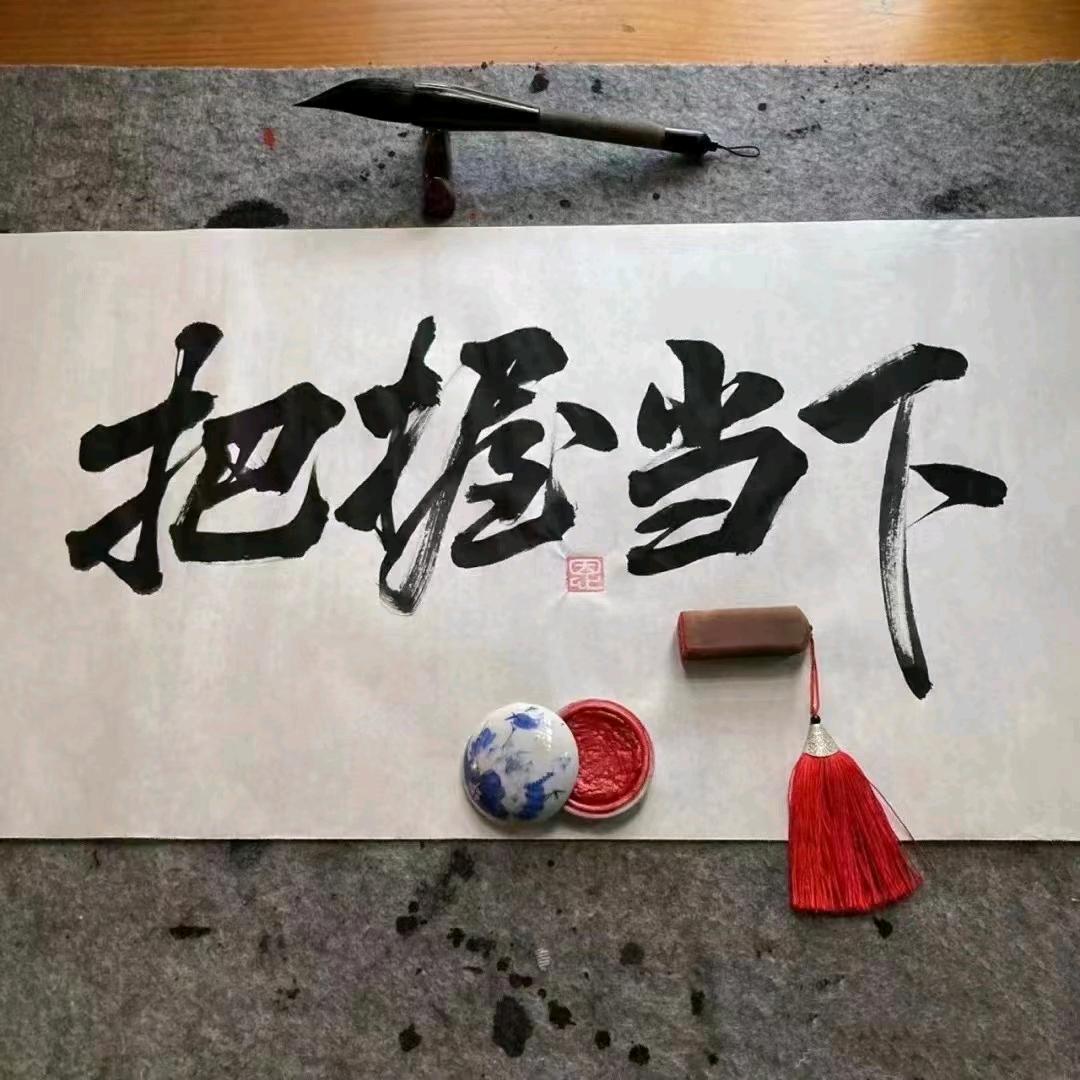 把握当下